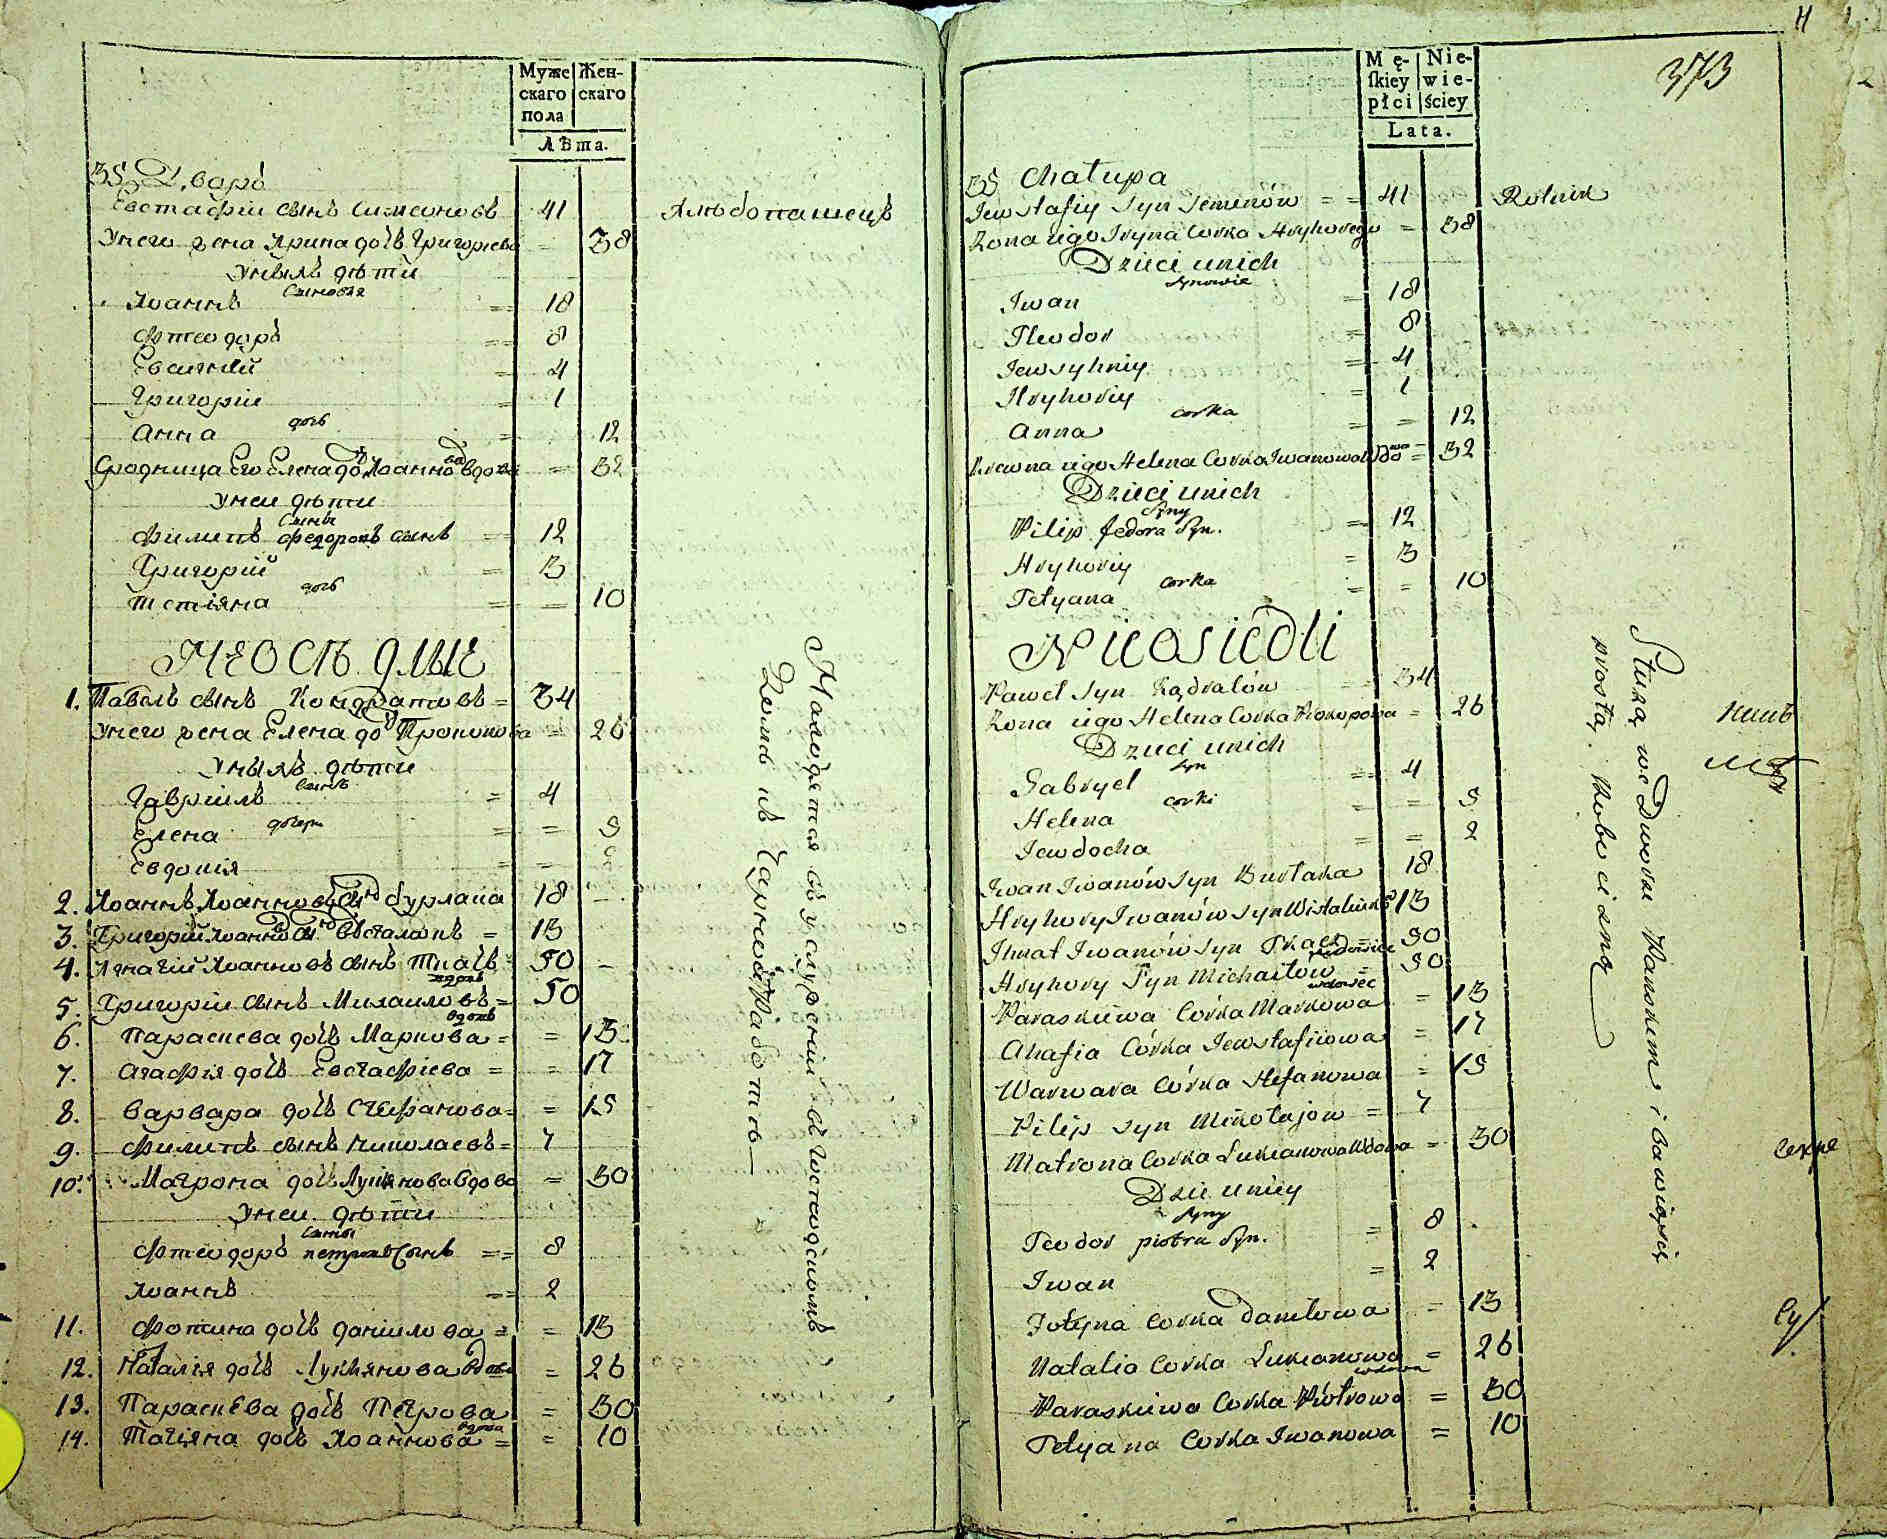 Муже скаго пола
Жен- скаго
Лѣта.
35 Дворъ
Евстафій сынъ Симеоновъ 41
Хлѣбопашецъ
У него жена Ирина дочь Григориева = 38
У нихъ дѣти
Сыновья
Іоаннъ = 18
Фтеодоръ = 8
Евсигній = 4
Григорій = 1
дочь
Анна = 12
Сродница Его Елена дочь Іоаннова вдова = 32
У неи дѣти
Сыны
Филипъ Федоровъ сынъ = 12
Григорій = 3
дочь
Тетіяна = = 10
Неосѣдлые
1. Павелъ сынъ Кондратовъ = 34
У него жена Елена дочь Прокопова = 26
У нихъ дѣти
сынъ
Гавріилъ = 4
дочери
Елена = = 5
Евдокія = = 2
2. Іоаннъ Іоанновъ сынъ бурлака 18
3. Григорій Іоанновъ сынъ = 13
4. Игнатій Іоанновъ сынъ Ткачъ 50
вдовъ
5. Григорій сынъ Михаиловъ = 50
вдовъ
6. Параскева дочь Маркова = = 13
7. Агафія дочь Евстафіева = = 17
8. Варвара дочь Стефанова = = 15
9. Филипъ сынъ Николаевъ = 7
10. Матрона дочь Лукянова вдова = 30
У неи дѣти
Сыны
Фтеодоръ петровъ Сынъ = 8
Іоаннъ = 2
11. Фотина дочь Даніилова = = 13
12. Наталія дочь Лукіянова вдова = 26
13. Параскева дочь Петрова = 30
вдова
14. Татіяна дочь Іоаннова = = 10
Находятся въ услуженіи въ Господскомъ
Домѣ въ Чорной Работѣ
4
373
Mę- ſkiey płci
Nie- wie- ściey
Lata.
35 Chałupa
Jewstafiy Syn Semenów = = 41
Rolnik
Zona iego Iryna Corka Hryhorego = 38
Dzieci u nich
Synowie
Iwan = 18
Theodor = 8
Jewsyhniy = 4
Hryhoriy = 1
corka
Anna = = 12
Krewna iego Helena Corka Iwanowa Wdowa = 32
Dzieci u nich
Syny
Pilip fedora Syn. = 12
Hryhoriy = 3
corka
Tetyana = = 10
Nieosiedli
Paweł Syn Kądratów 34
Zona iego Helena Corka Prokopowa = 26
Dzieci u nich
syn
Gabryel = 4
corki
Helena = = 5
Jewdocha = = 2
Iwan Iwanów Syn Burłaka 18
Hryhory Iwanów syn 13
Ihnat Iwanów Syn Tkacz = 50
wdowiec
Hryhory Syn Michaiłow = 50
wdowiec
Paraskiewa Córka Markowa = 13
Ahafia Córka Jewstafiiowa = 17
Warwara Córka Stefanowa = 15
Pilip syn Mikołajow = 7
Matrona Corka Łukianowa Wdowa = 30
Dzie u niey
Syny
Teodor piotra Syn. = 8
Iwan = 2
Fotyna Corka Daniłowa = 13
Natalia Corka Łukianowa = 26
wdowa
Paraskiewa Corka Piotrowa = 30
Tetyana Corka Iwanowa = 10
Służą we Dworze Pańskim i bawią się
prostą Robocizną